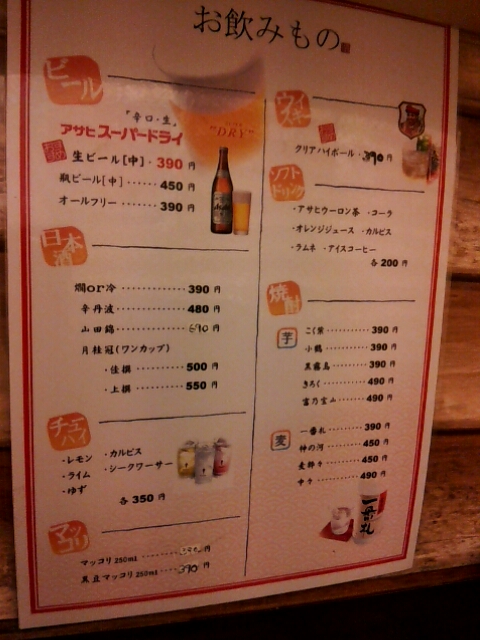 お飲みもの
ビール
「辛口・生」
アサヒスーパードライ
"DRY"
生ビール[中]・390円
瓶ビール[中]・・・・・・450円
オールフリー・・・・・・390円
日本酒
燗or冷・・・・・・・・・・・・390円
辛丹波・・・・・・・・・・・・480円
山田錦・・・・・・・・・・・・690円
月桂冠(ワンカップ)
・佳撰・・・・・・・・・500円
・上撰・・・・・・・・・550円
チューハイ
・レモン ・カルピス
・ライム ・シークワーサー
・ゆず
各350円
マッコリ
マッコリ250ml・・・・・・・・円
黒豆マッコリ250ml・・・390円
ウイスキー
クリアハイボール・390円
ソフトドリンク
・アサヒウーロン茶 ・コーラ
・オレンジジュース ・カルピス
・ラムネ ・アイスコーヒー
各200円
焼酎
芋
こく紫・・・・・・・・・390円
小鶴・・・・・・・・・・・・390円
黒霧島・・・・・・・・・390円
きろく・・・・・・・・・490円
富乃宝山・・・・・・490円
麦
一番札・・・・・・・・・390円
神の河・・・・・・・・・450円
麦酔々・・・・・・・・・450円
中々・・・・・・・・・・・・490円
一番札